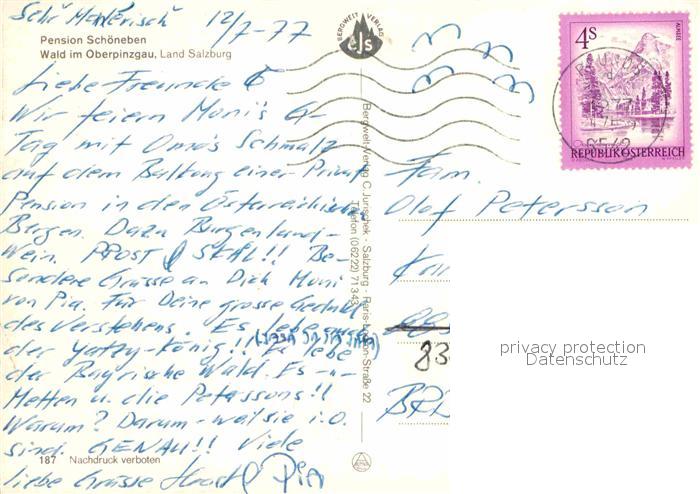 Sehr Malerisch 12/7-77
Pension Schöneben
Wald im Oberpinzgau, Land Salzburg
Liebe Freunde
Wir feiern Moni's G-
Tag mit Oma's Schmalz
auf dem Balkong einer Privat
Pension in den Österreichischen
Bergen. Dazu Burgenland-
wein. PROST & SKÅL!! Be-
sondere Grüsse an Dich Moni
von Pia. Für Deine grosse Geduld
des Verstehens. Es lebe auch
der Yatzy-König!! Es lebe
der Bayrische Wald. Es
Metten u. die Petersons!!
Warum? Darum - weil sie i.O.
sind. GENAU!! Viele
187 Nachdruck verboten
liebe Grüsse Pia
BERGWELT VERLAG
eJs
Bergwelt-Verlag C. Jurischek - Salzburg - Raris-Lodron-Straße 22
Telefon (06222) 71343
4S
ALMSEE
REPUBLIK ÖSTERREICH
Fam.
Olof Petersson
83
BRD
privacy protection
Datenschutz